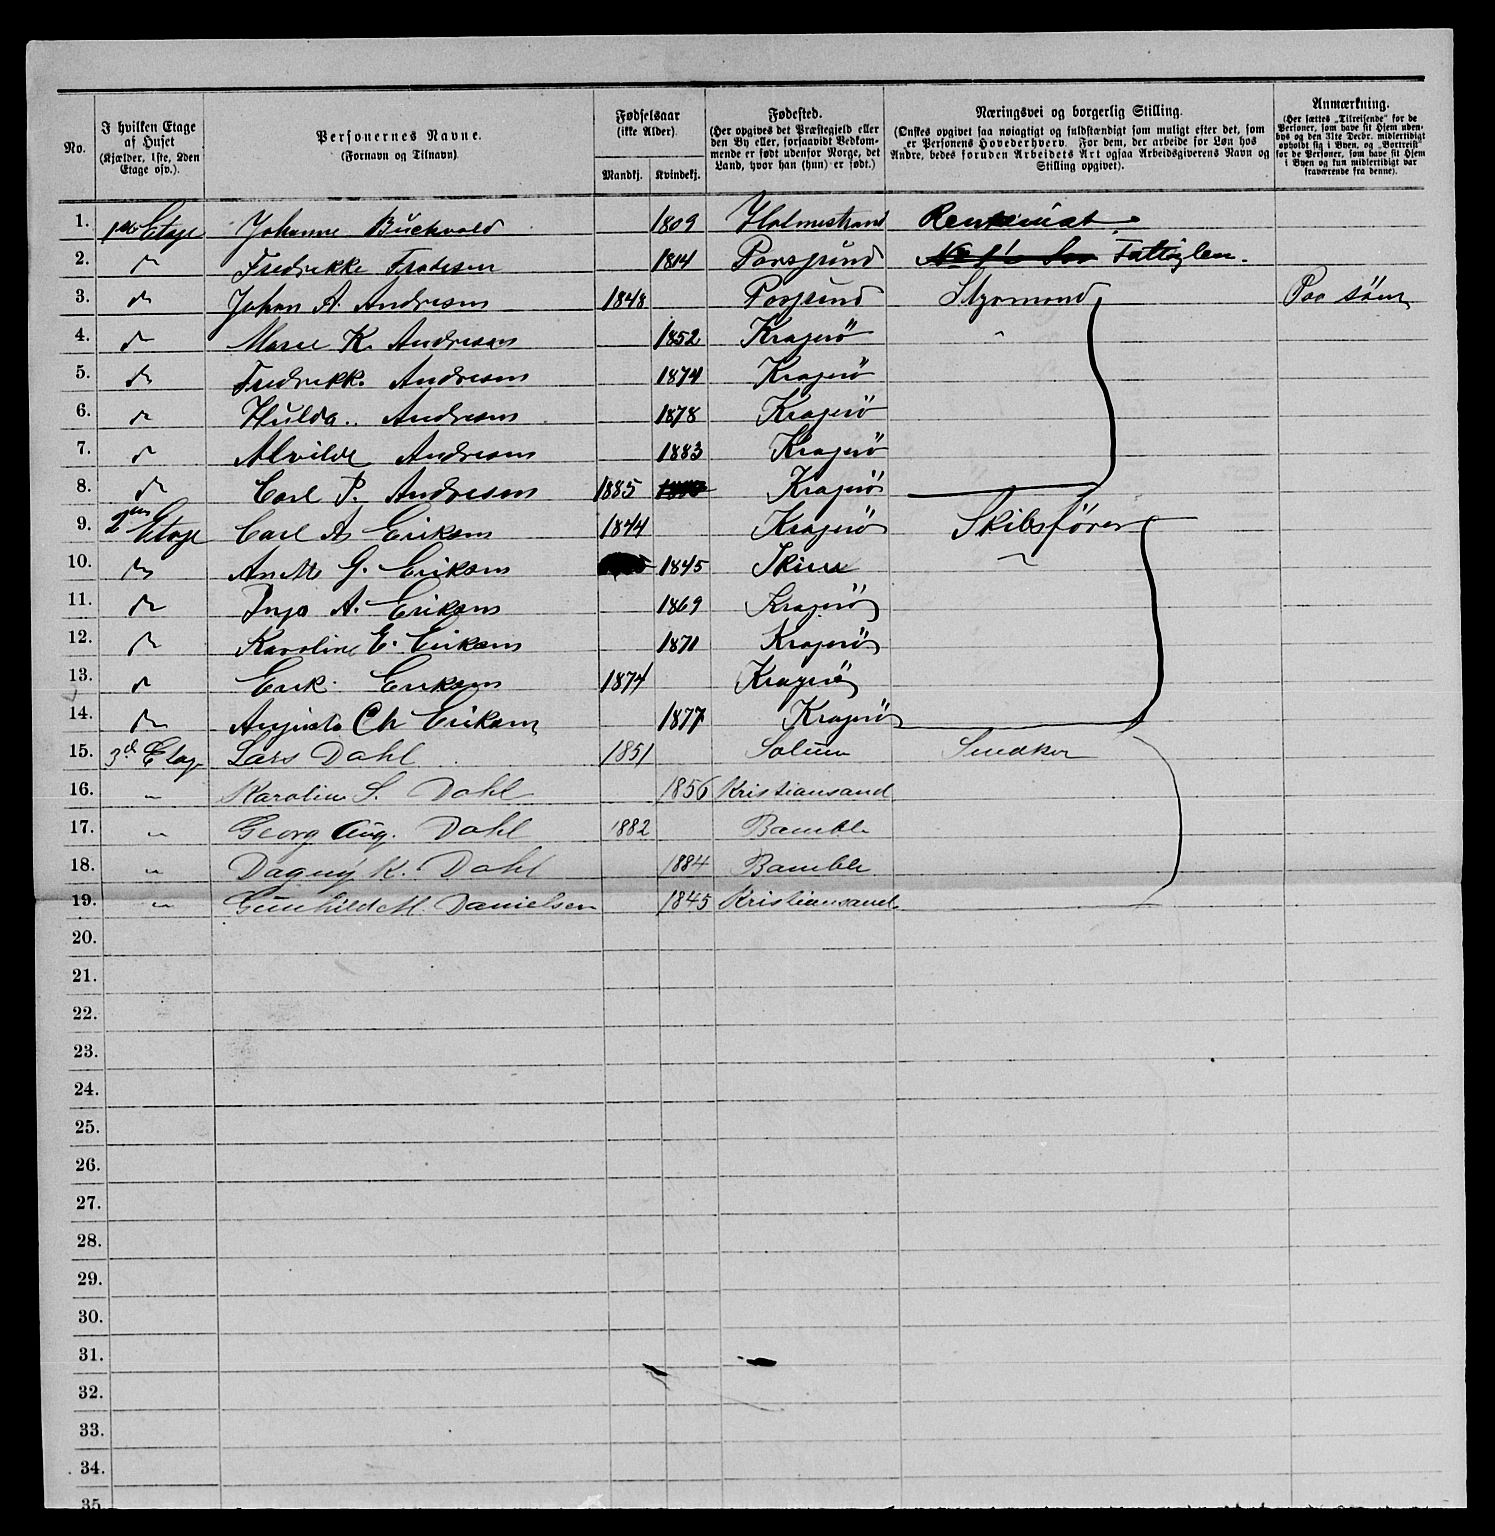 No. I hvilken Etage af Huset (Kjælder, 1ste, 2den Etage osv.). Personernes Navne. (Fornavn og Tilnavn) Fødselsaar (ikke Alder) Mandkj. Kvindekj. Fødested. (Her opgives det Præstegjeld eller den By eller, forsaavidt Vedkommende er født udenfor Norge, det Land, hvor han (hun) er født.) Næringsvei og borgerlig Stilling. (Ønskes opgivet saa nøiagtigt og fuldstændigt som muligt efter det, som er Personens Hovederhverv. For dem, der arbeide for Løn hos Andre, bedes foruden Arbeidets Art ogsaa Arbeidsgiverens Navn og Stilling opgivet). Anmærkning. (Her sættes „Tilreisende" for de Personer, som have sit Hjem udenbys og den 31te Decbr. midlertidigt opholdt sig i Byen, og „Bortreist" for de Personer, som have sit Hjem i Byen og kun midlertidigt var fraværende fra denne).
1. 1ste Etage Johanne Buckvald 1809 Holmestrand
2. " Fredrikke 1814 Porsgrund Fattiglem.
3. " Johan A. Andresen 1848 Porsgrund Styrmand Paa søen
4. " Marie K. Andresen 1852 Kragerö "
5. " Fredrikke Andresen 1874 Kragerö
6. " Hulda Andresen 1878 Kragerö
7. " Alvilde Andresen 1883 Kragerö
8. " Carl P. Andresen 1885 Kragerö
9. 2den Etage Carl A. Eriksen 1844 Kragerö Skibsfører
10. " Anette G. Eriksen 1845 Skien "
11. " Inga A. Eriksen 1869 Kragerö
12. " Karoline E. Eriksen 1871 Kragerö
13. " Erik Eriksen 1874 Kragerö
14. " Augusta Ch Eriksen 1877 Kragerö
15. 3de Etage Lars Dahl 1851 Solum Snedker
16. " Karoline S. Dahl 1856 Kristiansand
17. " Georg Aug. Dahl 1882 Bamble
18. " Dagny K. Dahl 1884 Bamble
19. " Gunhild M. Danielsen 1845 Kristiansand
20.
21.
22.
23.
24.
25.
26.
27.
28.
29.
30.
31.
32.
33.
34.
35